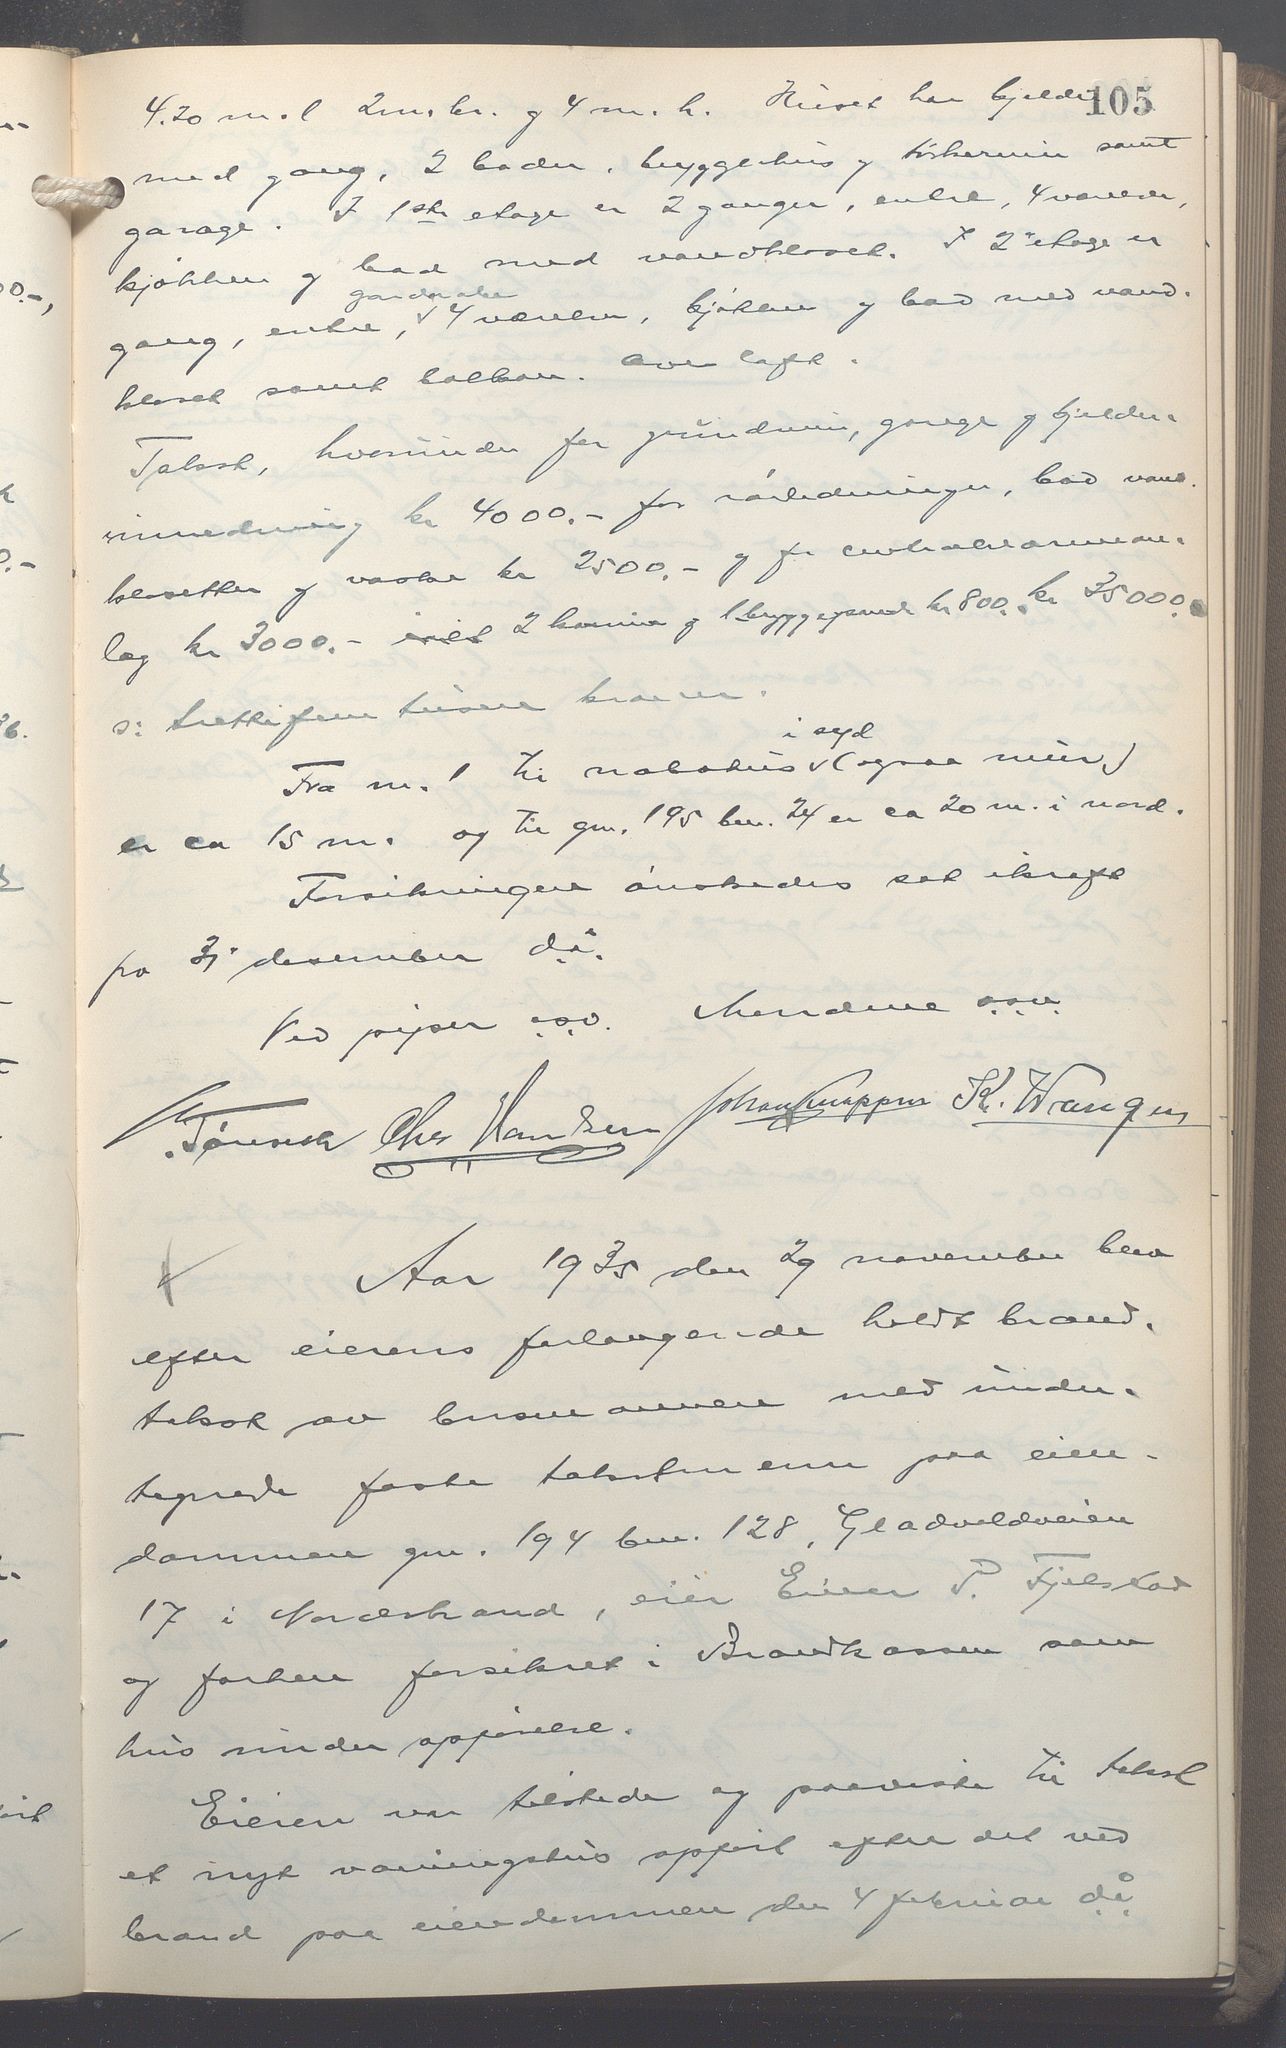 105
4.20 m. l 2 m. br. og 4 m. h. Huset har kjelder
med gang, 2 boder, bryggerhus og tørkerum samt
garage. I 1ste etage er 2 ganger, entre, 4 værelser,
kjøkken og bad med vandkloset. I 2' etage er
garderobe
gang, entre, 4 værelser, kjøkken og bad med vand-
kloset samt balkon. Over loft.
Takst, hvorunder for grundmur, garage og kjelder-
inredning kr 4000.- for rørledninger, bad vand-
klosetter og vasker kr 2500.- og for centralvarmean-
læg kr 3000.- 2 kaminer og 1 bryggepande kr 800.- kr 35000.-
o: trettifem tusen kroner.
i syd
Fra m. 1 til nabohus (ogsaa mur)
er ca 15 m. og til gnr. 195 bnr. 24 er ca 20 m. i nord.
Forsikringen ønskedes sat ikraft
fra 31' desember d.å.
Ved piper o.s.v. Mændene o.s.v.
Tønseth Chr Handsen Johan Knappen K. Wangen
Aar 1935 den 29 november blev
efter eierens forlangende holdt brand-
takst av lensmannen med under-
tegnede faste takstmenn paa eien-
dommen gnr. 194 bnr. 128, Gladvoldveien
17 i Nordstrand, eier Einar P. Fjelstad
og forhen forsikret i Brandkassen som
hus under opførelse.
Eieren var tilstede og paaviste til takst
et nyt vaaningshus opført efter det ved
brand paa eiendommen den 4 februar d.å.